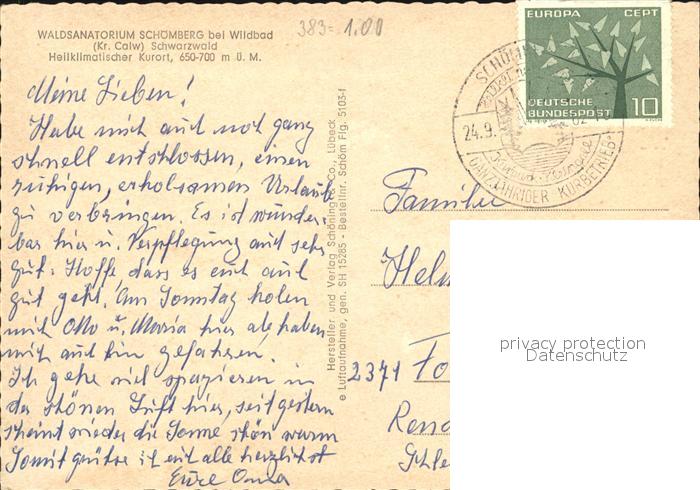 WALDSANATORIUM SCHÖMBERG bei Wildbad
(Kr. Calw) Schwarzwald
Heilklimatischer Kurort, 650-700 m ü. M.
383= 1.00
EUROPA CEPT
DEUTSCHE
BUNDESPOST 10
24.9.
GANZJÄHRIGER KURBETRIEB
Meine Lieben!
Habe mich auch noch ganz
schnell entschlossen, einen
ruhigen, erholsamen Urlaub
zu verbringen. Es ist wunder-
bar hier u. Verpflegung auch sehr
gut. Hoffe dass es euch auch
gut geht. Am Sonntag holen
mich Otto u. Maria hier ab, haben
mich auch hin gefahren.
Ich gehe viel spazieren in
der schönen Luft hier, seit gestern
scheint wieder die Sonne schön warm
Somit grüsse ich euch alle herzlichst
Eure Oma
Hersteller und Verlag Schöning & Co., Lübeck
e Luftaufnahme, gen. SH 15285 - Bestellnr. Schöm Flg. 5103-f
Familie
Helm
2371 Fo
Rends
Schle
privacy protection
Datenschutz